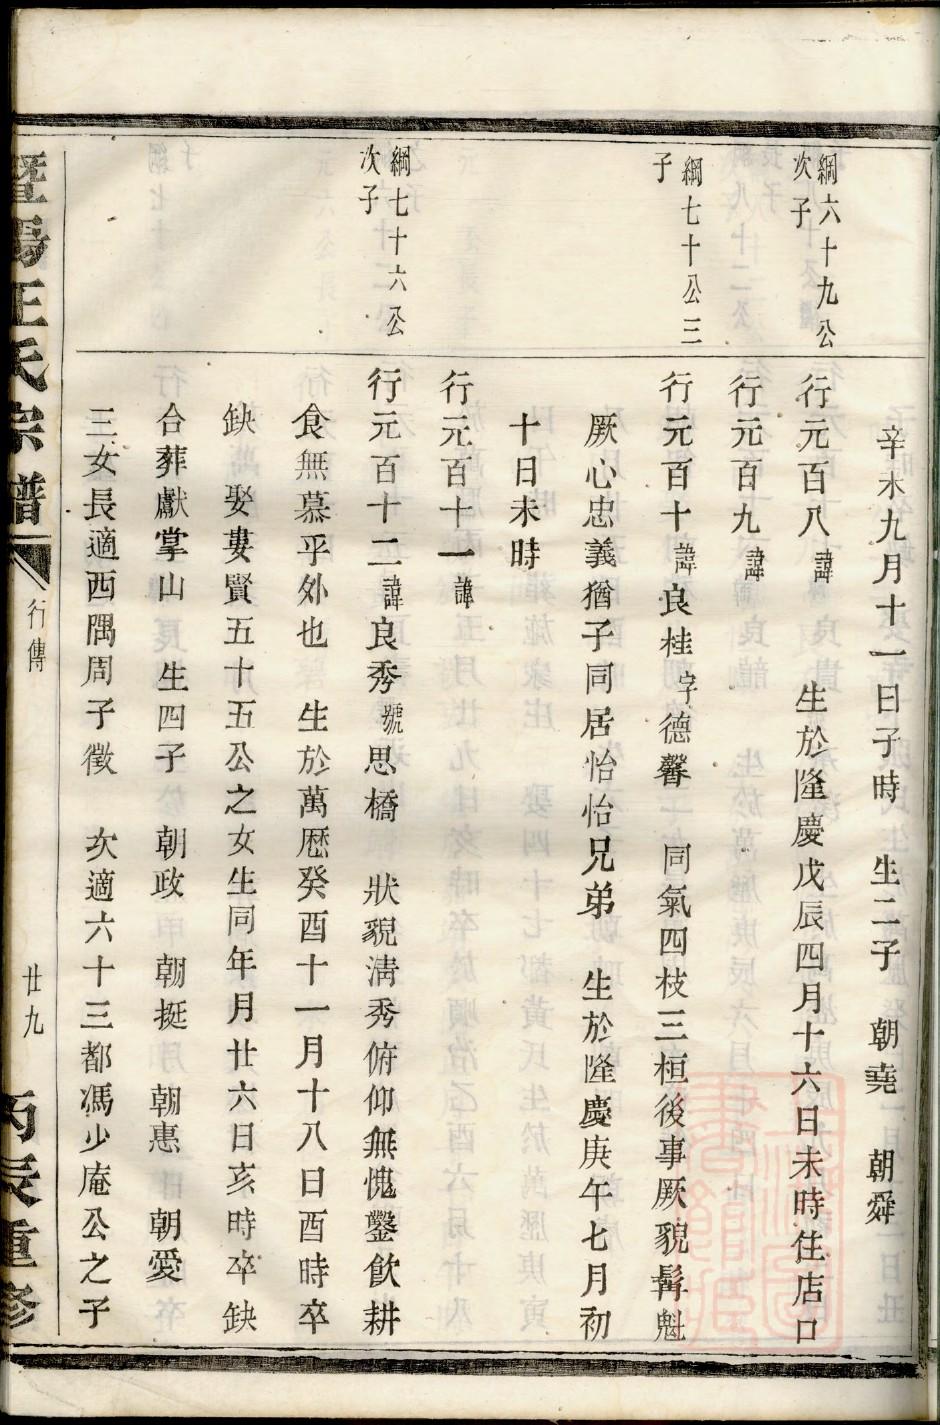 辛未九月十一日子時　生二子　朝堯　朝舜
綱六十九公
次子
行元百八諱　生於隆慶戊辰四月十六日未時住店口
行元百九諱
綱七十公三
子
行元百十諱良桂字德馨　同氣四枝三桓後事厥貌髯魁
厥心忠義猶子同居怡怡兄弟　生於隆慶庚午七月初
十日未時
行元百十一諱
綱七十六公
次子
行元百十二諱良秀號思橋　狀貌淸秀俯仰無愧鑿飲耕
食無慕乎外也　生於萬厯癸酉十一月十八日酉時卒
缺　娶婁賢五十五公之女生同年月廿六日亥時卒缺
合葬獻掌山　生四子　朝政　朝挺　朝惠　朝愛
三女長適西隅周子徵　次適六十三都馮少庵公之子
暨陽王氏宗譜
行傳
廿九
丙辰重修